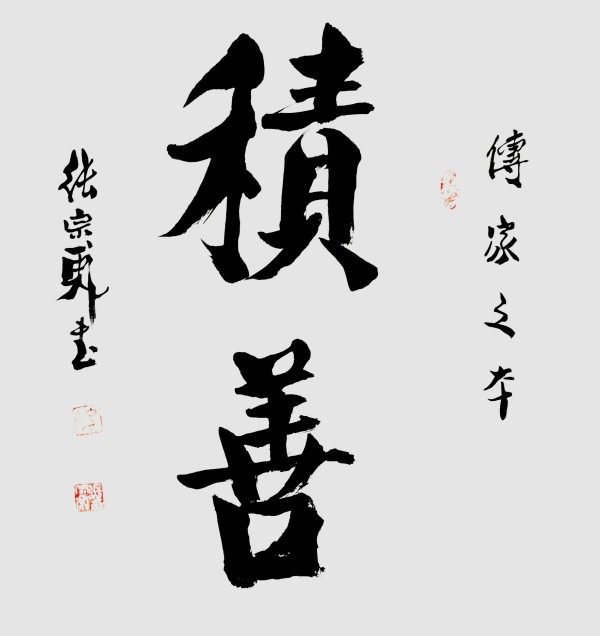 傳家之本
積善
張宗書